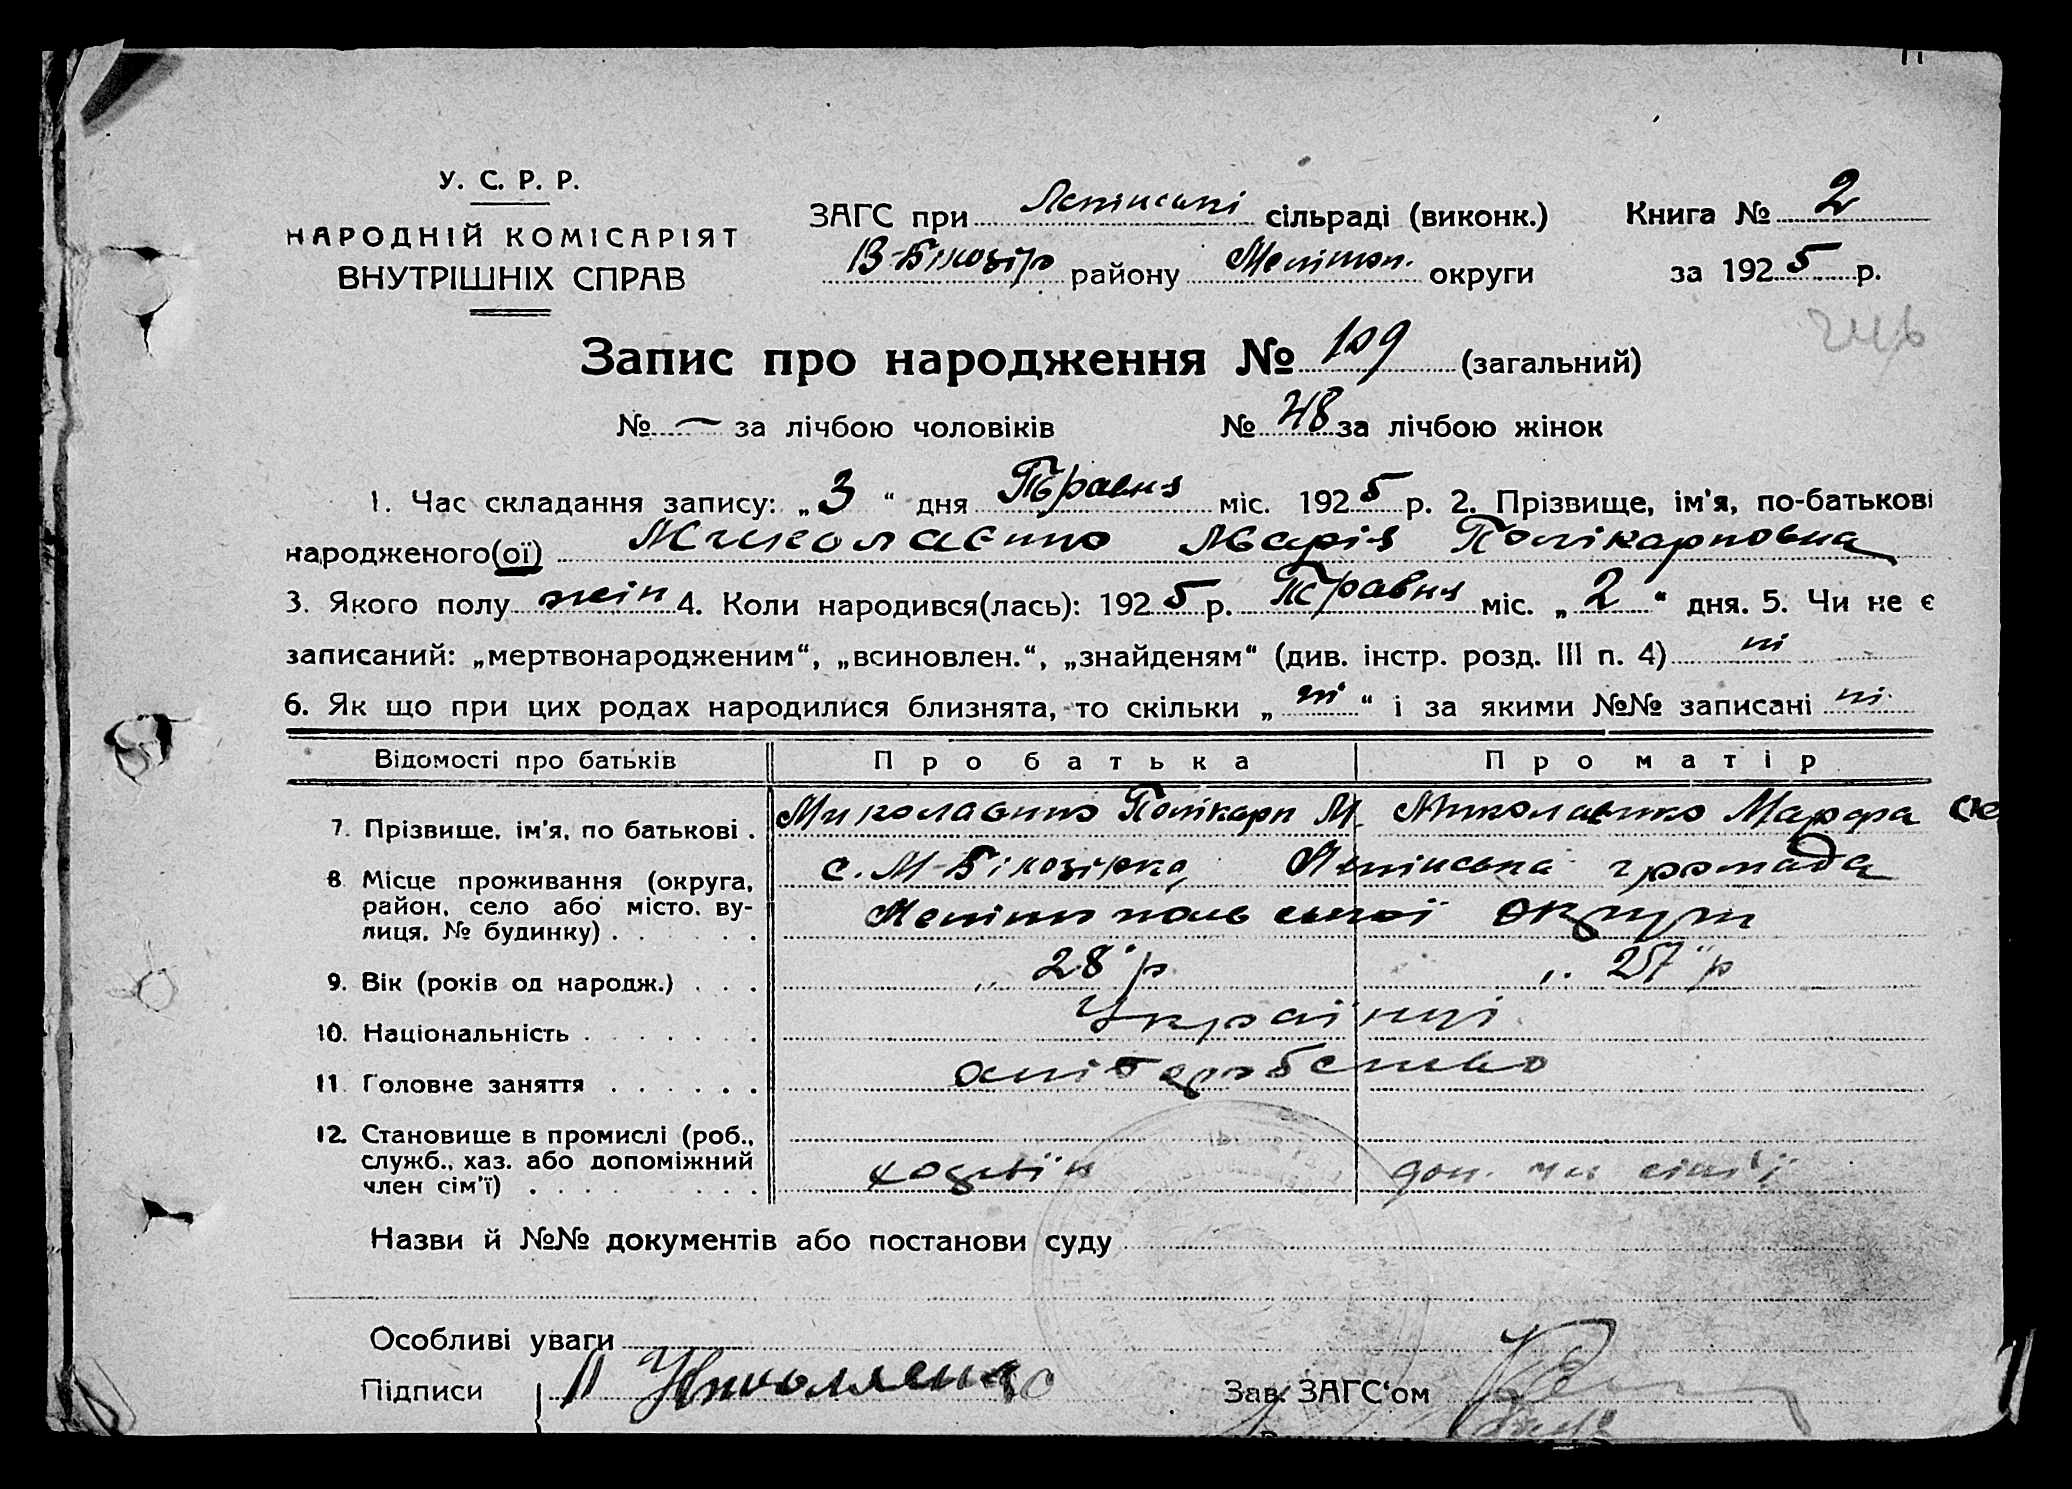 У. С. Р. Р.
НАРОДНІЙ КОМІСАРІЯТ
ВНУТРІШНІХ СПРАВ
ЗАГС при Ленінські сільраді (виконк.)
В-Білозір району Мелітоп. округи
Книга № 2
за 1925 р.
Запис про народження № 109 (загальний)
№ — за лічбою чоловіків № 48 за лічбою жінок
1. Час складання запису: „3“ дня Травня міс. 1925 р. 2. Прізвище, ім'я, по-батькові
народженого(ої) Миколаєнко Марія Полікарповна
3. Якого полу жін 4. Коли народився(лась): 1925 р. Травня міс. „2“ дня. 5. Чи не є
записаний: „мертвонародженим“, „всиновлен.“, „знайденям“ (див. інстр. розд. III п. 4) ні
6. Як що при цих родах народилися близнята, то скільки „ні“ і за якими №№ записані ні.
Відомості про батьків Про батька Про матір
7. Прізвище, ім'я, по батькові . Миколаєнко Полікарп М. Миколаєнко Марфа
8. Місце проживання (округа, с. М-Білозірка, Ленінська громада
район, село або місто, ву-
лиця, № будинку) . . . . . . Мелітопольської округи
9. Вік (років од народж.) . . . „28“ р „27“ р
10. Національність . . . . . . . Українці
11. Головне заняття . . . . . . хліборобство
12. Становище в промислі (роб.,
служб., хаз. або допоміжний
член сім'ї) . . . . . . . . . хозяїн доп. чл сім'ї
Назви й №№ документів або постанови суду
Особливі уваги
Підписи П Николаенко Зав. ЗАГС'ом